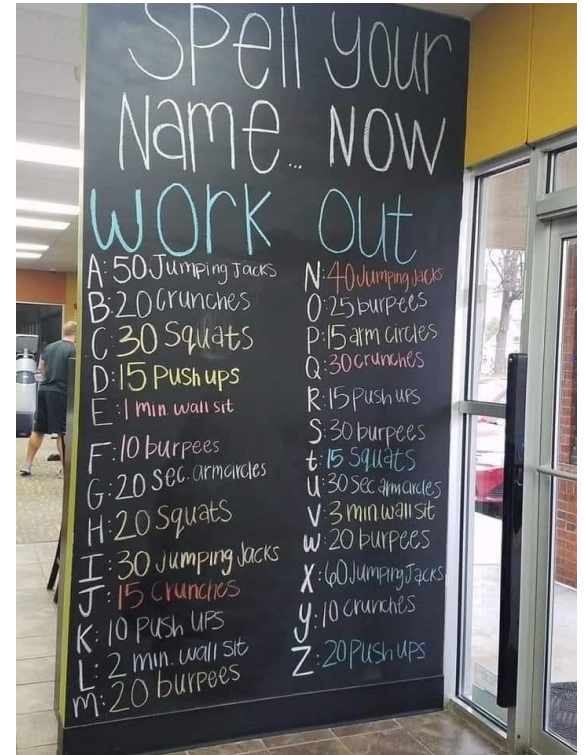 Spell your
Name... NOW
work out
A: 50 Jumping Jacks
B: 20 Crunches
C: 30 Squats
D: 15 Push ups
E: 1 min. wall sit
F: 10 burpees
G: 20 sec. armcircles
H: 20 Squats
I: 30 Jumping Jacks
J: 15 Crunches
K: 10 Push ups
L: 2 min. wall sit
m: 20 burpees
N: 40 Jumping Jacks
O: 25 burpees
P: 15 arm circles
Q: 30 crunches
R: 15 push ups
S: 30 burpees
t: 15 Squats
u: 30 sec armcircles
V: 3 min wall sit
W: 20 burpees
X: 60 Jumping Jacks
y: 10 crunches
Z: 20 Push ups